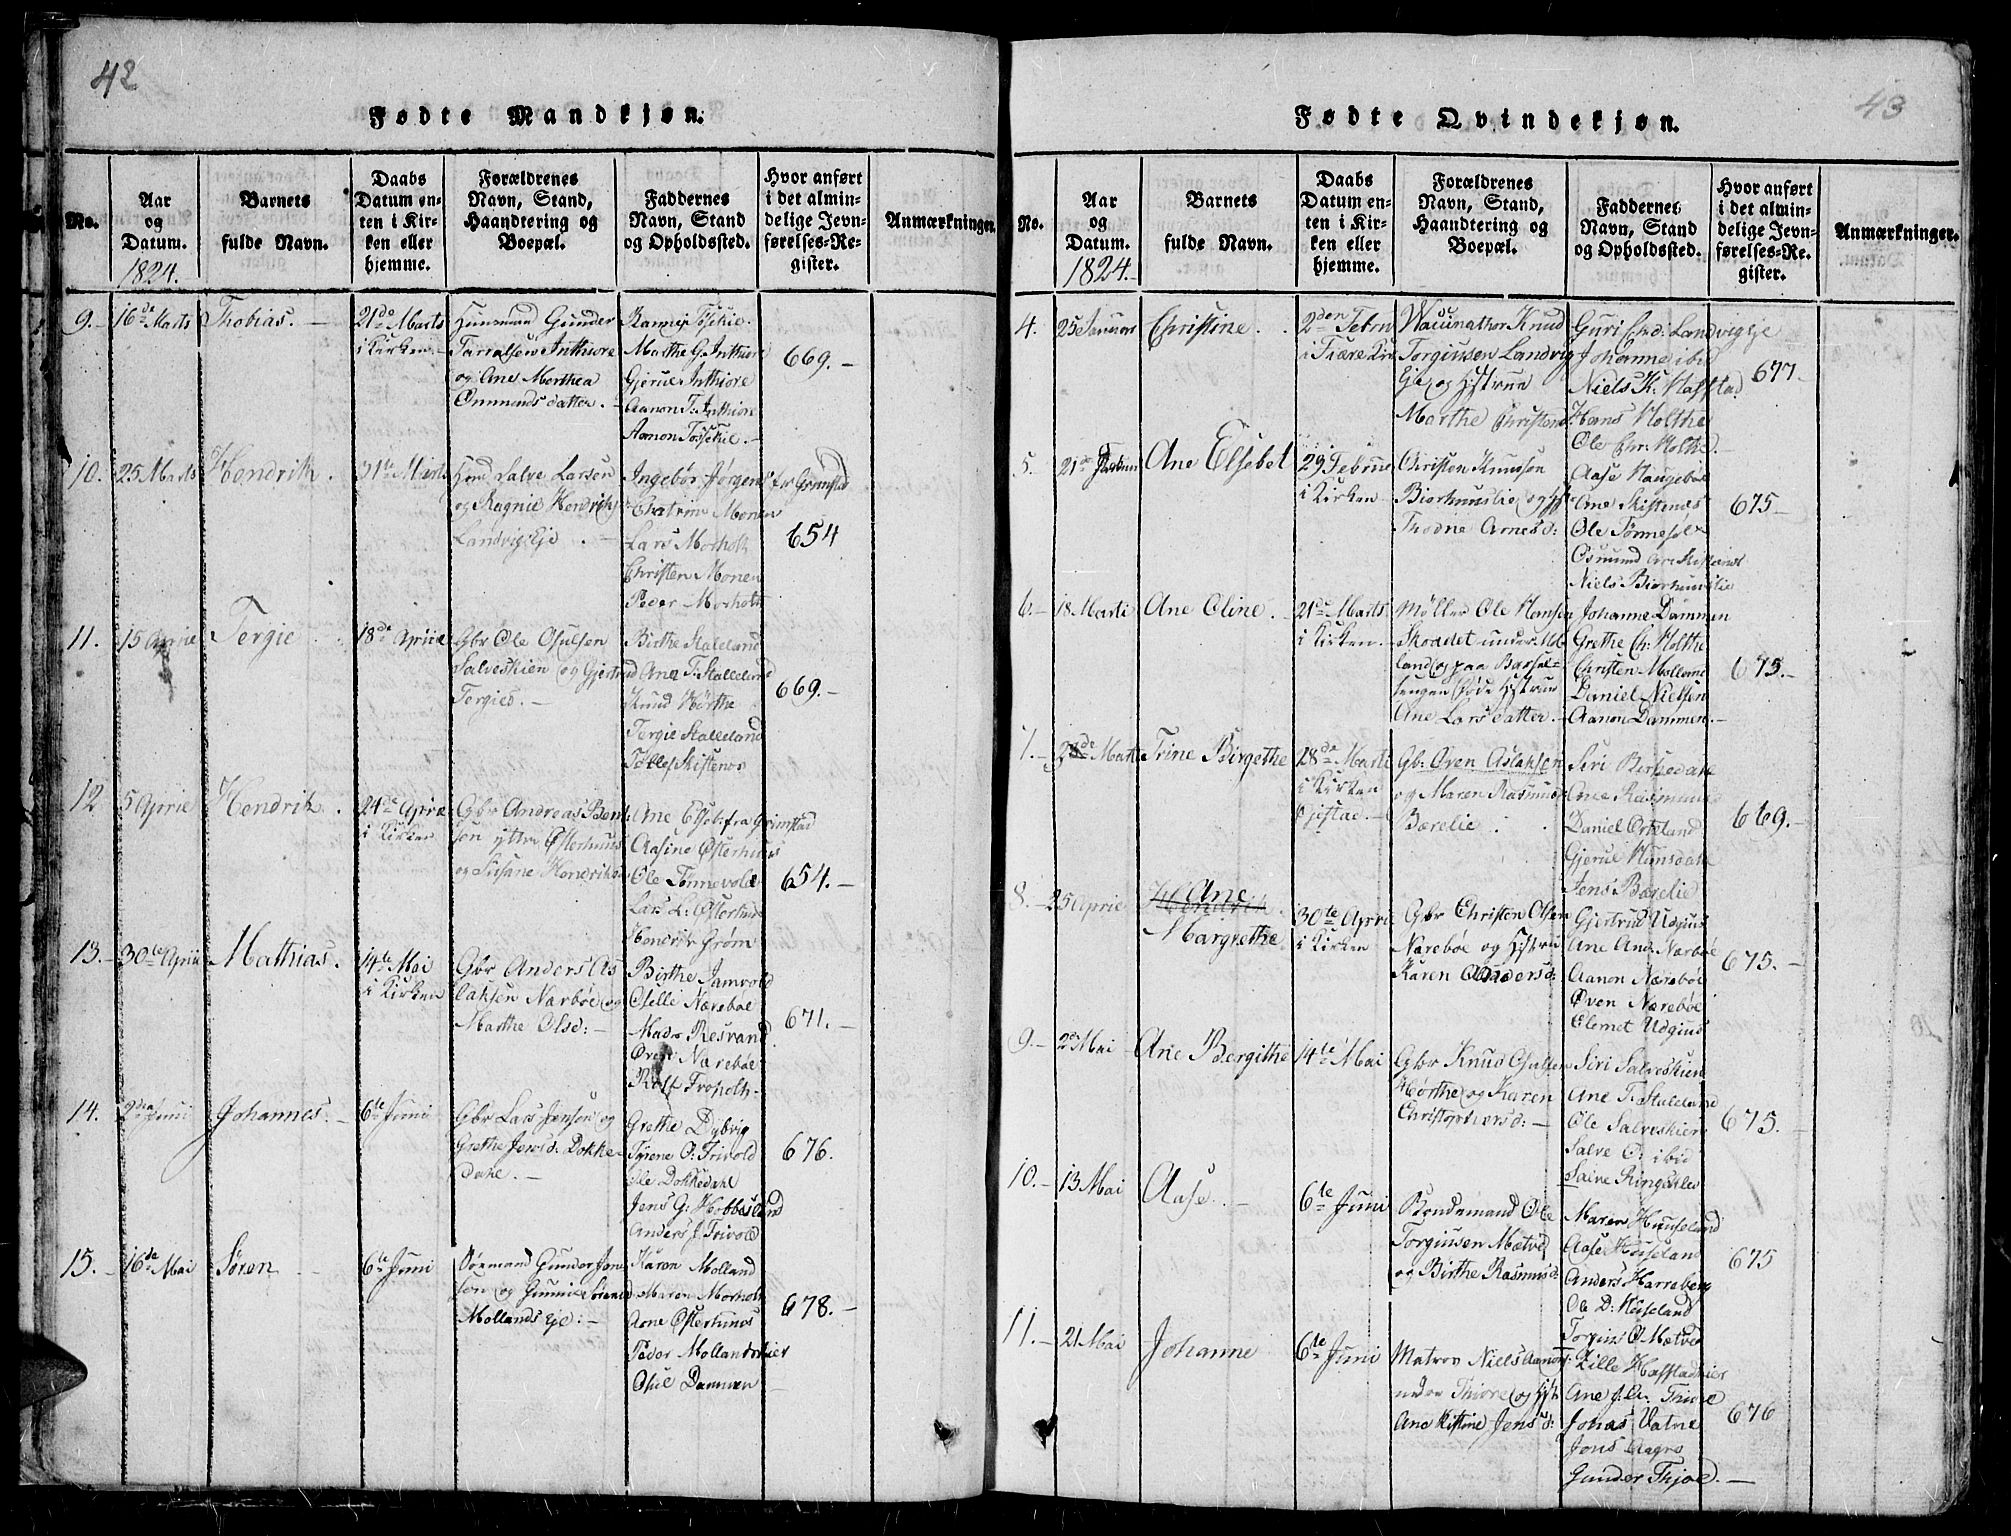 42
Fødte Mandkjøn.
No.
Aar
og
Datum.
1824.
Barnets
fulde Navn.
Daabs
Datum en-
ten i Kir-
ken eller
hjemme.
Forældrenes
Navn, Stand,
Haandtering og
Boepæl.
Faddernes
Navn, Stand
og Opholdssted.
Hvor anført
i det almin-
delige Jevn-
førelses-Re-
gister.
Anmærkninger.
9.
16de Marts
Thobias.
21de Marts
i Kirken
Huusmand Gunder
Tarralsen Inthiore
og Ane Marthea
Ommunds datter.
Marthe G. Inthiore
Gjerul Inthiore
Aanon T. Inthiore
Aanon Tøsekie.
669.
10.
25 Marts
Hendrik.
31te Marts
Salve Larsen
og Ragnie Hendriks
Landvig Eje
Ingebor Jørgens fr Grimstad
Chatrin Monen
Lars Morholt
Christen Monen
Peder Morholt
654
11.
15 Aprie
Tergie
18de Aprie
Gbr Ole Osulsen
Salveskien og Gjertrud
Tergies.
Birthe Staleland
Ane T. Stalleland
Knud Hørthe
Tergie Stalleland
Tøllef Skistenes
669.
12
5 Aprie
Hendrik.
24de Aprie
i Kirken
Gbr Andreas Bent
sen yttre Østerhuus
og Susane Hendriksd
Ane Elsbt fra Grimstad
Aasine Østerhuus
Ole Tønnevold
Lars L: Østerhus
Hendrik Grøm
654.
13.
30te Aprie
Mathias.
14te Mai
i Kirken
Gbr Anders As
laksen Narbøe og
Marthe Olsd:
Birthe Jamvold
Oselle Nærebøe
Mads Resvand
Øven Nærebøe
Rolf Froholt
671.
14.
2den Juni
Johannes.
6te Juni
Gbr Lars Jensen og
Grethe Jensd: Dokke-
dahl.
Grethe Dybvig
Tyrene O: Trivold
Ole Dokkedahl
Jens G: Hobbesland
Anders J. Trivold
676.
15.
16de Mai
Søren
6te Juni
Sørmand Gunder Jen
sen og Gunnil Sørensd
Mollands Eje.
Karen Molland
Maren Morholt
Arne Østerhuus
Peder Mollandskier
Osul Dammen
678.
43
Fødte Qvindekjøn.
No.
Aar
og
Datum.
1824.
Barnets
fulde Navn.
Daabs
Datum en-
ten i Kir-
ken eller
hjemme.
Forældrenes
Navn, Stand,
Haandtering og
Boepæl.
Faddernes
Navn, Stand
og Opholdssted.
Hvor anført
i det almin-
delige Jevn-
førelses-Re-
gister.
Anmærkninger.
4.
25 Januar
Christine.
2den Febru
i Fiære Kir
Knud
Torgiusen Landvig
Eje og Hstrue
Marthe Christens
Guri Knd: Landvigeje
Johanne ibid
Niels K. Hafstad
Hans Holthe
Ole Chr: Holthe.
677
5.
21de
Ane Elsebet
29 Februe
i Kirken
Christen Knudsen
Biorhuuslie og Hst
Thodne Arnesd:
Aase Haugebøe
Ane Skistenes
Ole Tønnesøl
Osmund
Niels Biorhuuslie
675
6.
18 Marti
Ane Oline.
21de Marts
i Kirken.
Møller Ole Hansen
Skoddet under Mol
land og paa Barsel-
sengen døde Hstrue
Ane Larsdatter.
Johanne Dammen
Grethe Ch: Holthe
Christen Mollome
Daniel Nielsen
Aanon Dammen.
675.
7.
Marti
Trine Birgethe
28de Marti
i Kirken
Øjestad.
Gb: Øven Aslaksen
og Maren Rasmusd
Bærelie
Siri Birkedahl
Ane Rasmusd
Daniel Ørteland
Gjerul Hunsdahl
Jens Bærelie
669.
8.
25 Aprie
Ane
Hendrik.
Margrethe
30te Aprie
i Kirken
Gbr Christen Olsen
Nærebøe og Hstrue
Karen Andersd:
Gjertrud Udgius
Ane And: Narbøe
Aanon Nærebøe
Øven Nærebøe
Clemet Udgius
675.
9.
2de Mai
Ane Bergithe
14te Mai
Gbr Knud Osulsen
Hørthe og Karen
Christophersd:
Siri Salveskien
Ane T. Staleland
Ole Salveskien
Salve O: ibid
Salve Ringdalen
675.
10.
13 Mai
Aase.
6te Juni
Bondemand Ole
Torgiusen Mætved
og Birthe Rasmusd:
Maren Huuseland
Aase Heiseland
Anders Harreberg
Ole D: Heiseland
Torgius O Mætved
675
11.
21 Mai
Johanne
6te Juni
Matros Niels Aanons:
under Thiore og Hst
Ane Kistine Jensd:
Zille Hafstadkier
Ane J. Thiore
Jonas Vatne
Jens Aagre
Gunder Thjore.
676